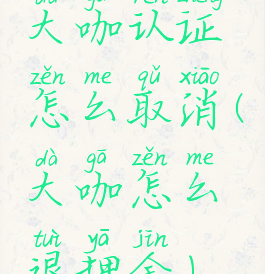 dà gā rèn zhèng
大咖认证
zěn me qǔ xiāo
怎么取消(
dà gā zěn me
大咖怎么
tuì yā jīn
退押金)